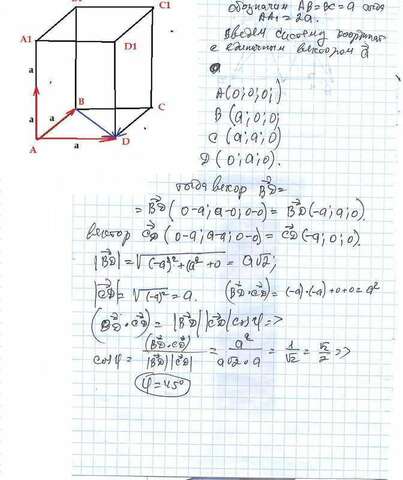 обозначим AB=BC=a тогда
AA1=2a.
Введем систему координат
с единичным вектором a⃗
C1
A1
D1
a
a
B
C
a
a
A
D
A(0;0;0;)
B(a;0;0;
C(a;a;0)
D(0;a;0).
тогда векор B⃗D=
=B⃗D(0-a;a-0;0-0)=B⃗D(-a;a;0).
вектор C⃗D(0-a;a-a;0-0)=C⃗D(-a;0;0).
|B⃗D|=√(-a)²+(a²+0=a√2;
|C⃗D|=√(-a)²=a. (B⃗D•C⃗D)=(-a)•(-a)+0+0=a²
(B⃗D•C⃗D)=|B⃗D||C⃗D|cosφ=>
cosφ=(B⃗D•C⃗D)/|B⃗D||C⃗D|=a²/a√2•a=1/√2=√2/2=>
φ=45°